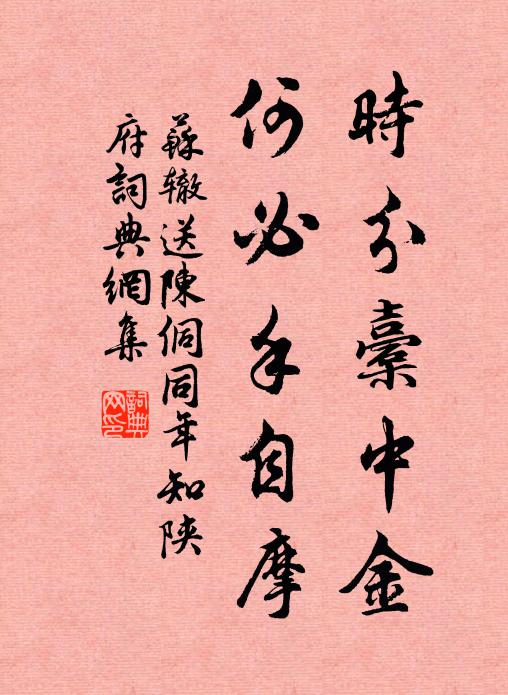 時分橐中金
何必手自摩
蘇辙送陳侗同年知陕
府詞典網集
詞典网印